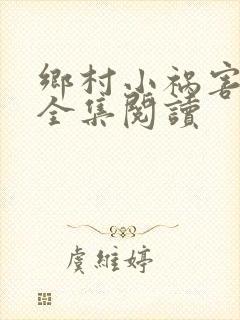 鄉村小禍害
全集閱讀
虞維婷